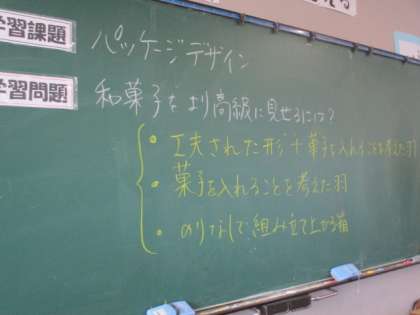 学習課題
パッケージデザイン
学習問題
和菓子をより高級に見せるには?
・工夫された形+菓子を入れることを考えた羽
・菓子を入れることを考えた羽
・のりなしで組み立て上がる箱